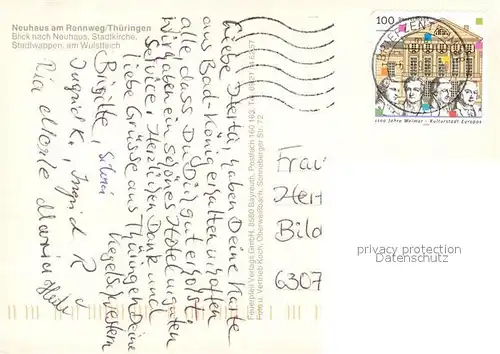 Neuhaus am Rennweg/Thüringen
Blick nach Neuhaus, Stadtkirche,
Stadtwappen, am Wulstteich
Liebe Herta, haben Deine Karte
aus Bad-König erhalten u. hoffen
alle, dass Du Dich gut erholst.
Wir haben ein schönes Hotel m. guten
Service. Herzlichen Dank und
Liebe Grüsse aus Thüringen Deine
Kegelschwestern
Brigitte, Silvia
Ingrid K., Ingrid R
Ria
Maria
Feuerpfeil Verlags GmbH, 8580 Bayreuth, Postfach 160 162
Foto u. Vertrieb Koch, Oberweißbach, Sonneberger Str. 72
100
BRIEFZENTRUM
1100 Jahre Weimar - Kulturstadt Europas
Frau
Her
Bild
6307
privacy protection
Datenschutz